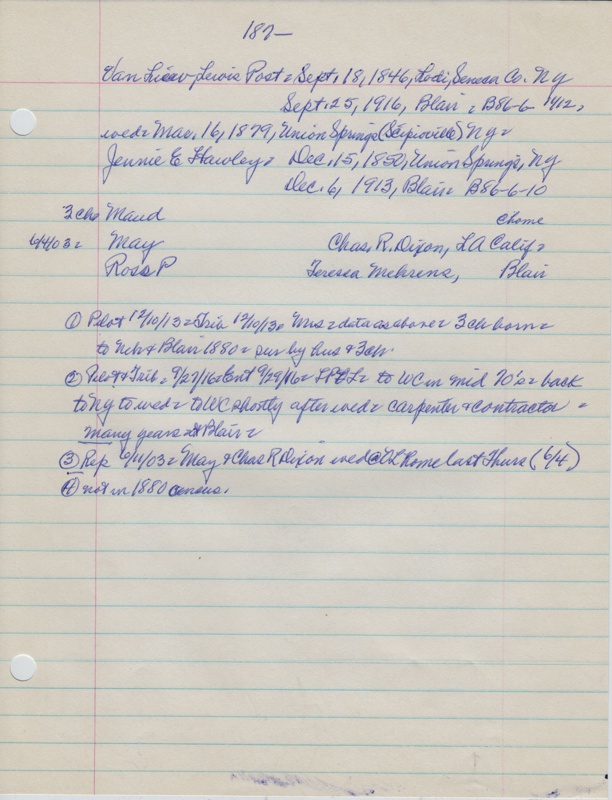 187—
Van Liew, Lewis Post = Sept. 18, 1846, Lodi, Seneca Co. NY
Sept. 25, 1916, Blair = B86-6
wed = Mar. 16, 1879, Union Springs (Scipioville) NY =
Jennie E Hawley = Dec. 15, 1850, Union Springs, NY
Dec. 6, 1913, Blair = B86-6-10
3 chs Maud @home
6/4/03 = May Chas. R. Dixon, LA Calif =
Ross P Teressa Mehrens, Blair
① Pilot 12/10/13 = Trib 12/10/13 = Mrs = data as above = 3 ch born =
to Neb & Blair 1880 = sur by hus & 3 ch.
② Pilot & Trib = 9/27/16 = Ent 9/29/16 = LPVL = to WC in mid 70's = back
to NY to wed = to WC shortly after wed = carpenter & contractor =
many years = Blair =
③ Rep 6/11/03 = May & Chas R Dixon wed @ home last Thurs (6/4)
④ not in 1880 census.